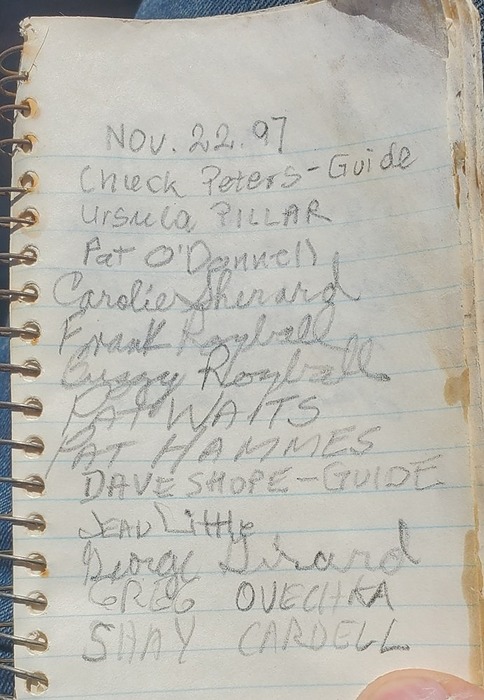 NOV. 22. 97
Chuck Peters - Guide
Ursula PILLAR
Pat O'Donnell
Carolie Sherard
Frank Roybal
Roybal
PAT WAITS
PAT HAMMES
DAVE SHOPE - GUIDE
JEAN Little
George Girard
GREG OVECHKA
SHAY CARDELL